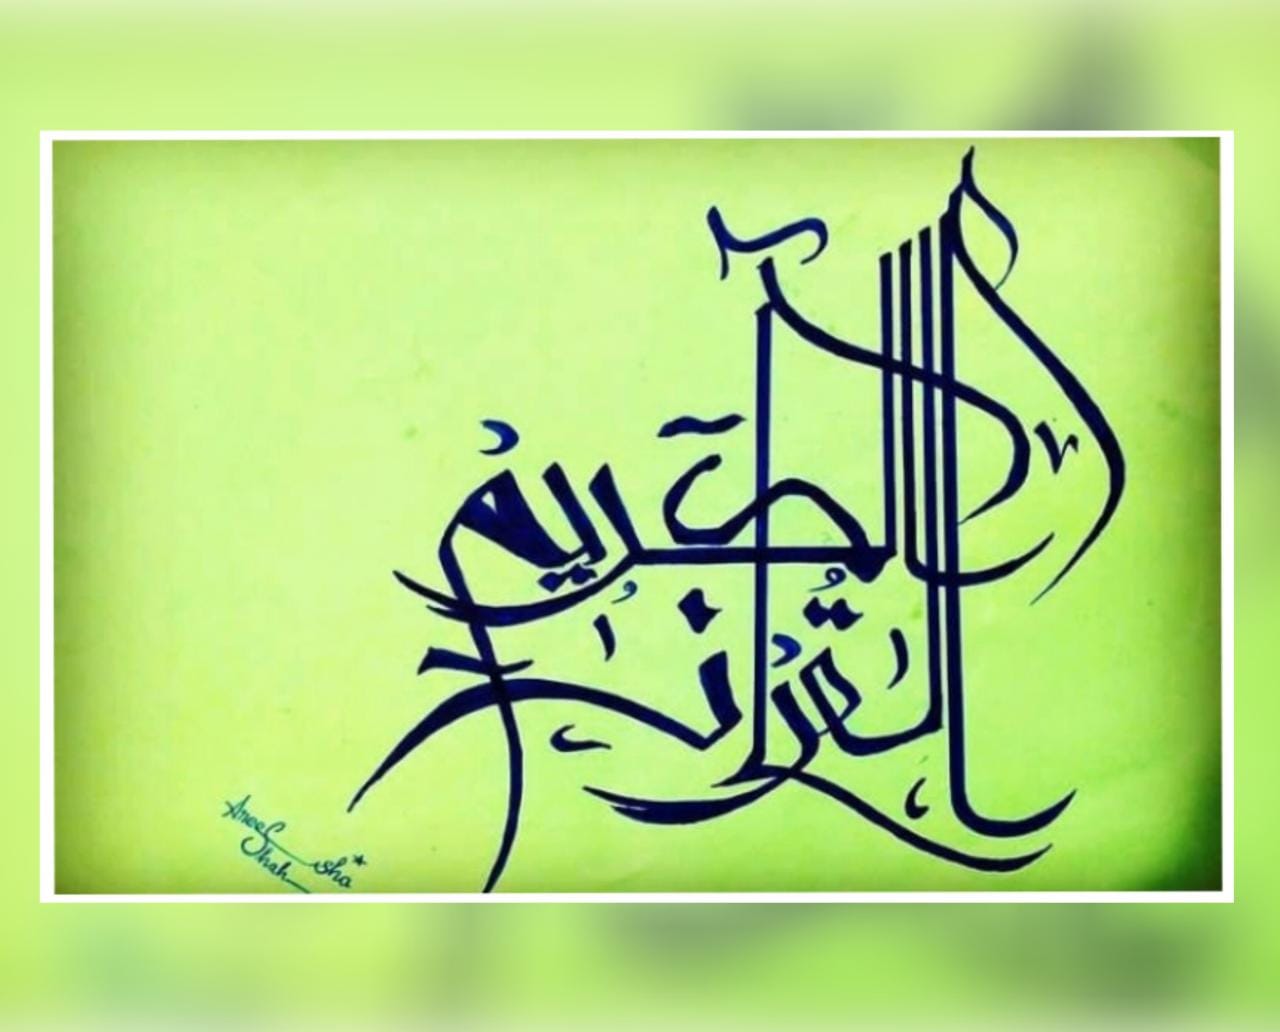 القرآن
الكريم
Anees
Shah sha